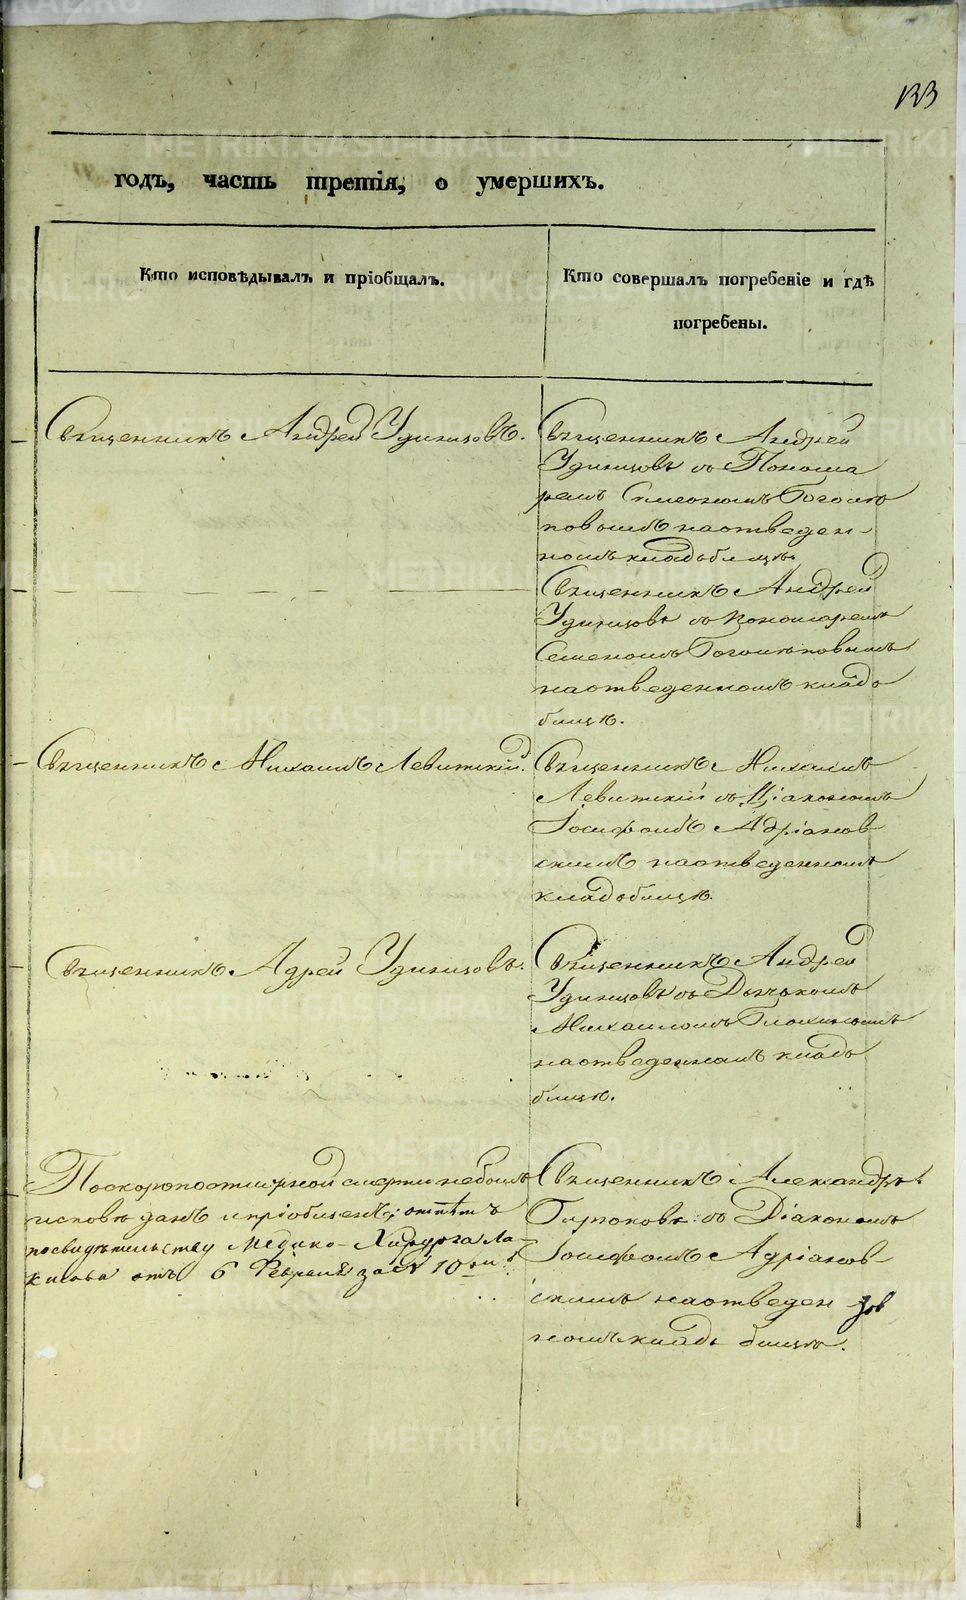 133
годъ, часть третія, о умершихъ.
Кто исповѣдывалъ и пріобщалъ.
Кто совершалъ погребеніе и гдѣ
погребены.
Священникъ Андрей Удинцовъ.
Священникъ Андрей
Удинцовъ съ Понома
ремъ Симеономъ Богомо
повымъ на отведен-
номъ кладбищѣ.
Священникъ Андрей
Удинцовъ съ пономаремъ
Семеномъ
на отведенномъ кладь
бищѣ.
Священникъ Михаилъ Левитскій.
Священникъ Михаилъ
Левитскій съ Діакономъ
Іосифомъ Адріанов-
скимъ на отведенномъ
кладьбищѣ.
Священникъ Адрей Удинцовъ.
Священникъ Андрей
Удинцовъ съ Дьячкомъ
Михаиломъ
на отведенномъ кладь
бищѣ.
По скоропостижной смерти небылъ
исповѣданъ и пріобщенъ; отпѣтъ
по свидѣтельству Медико-Хирурга Ла-
кина отъ 6 Февраля за № 10ым.
Священникъ Александръ
съ Діакономъ
Іосифомъ Адріанов-
скимъ на отведен
номъ кладь бищѣ.
METRIKI.GASO-URAL.RU